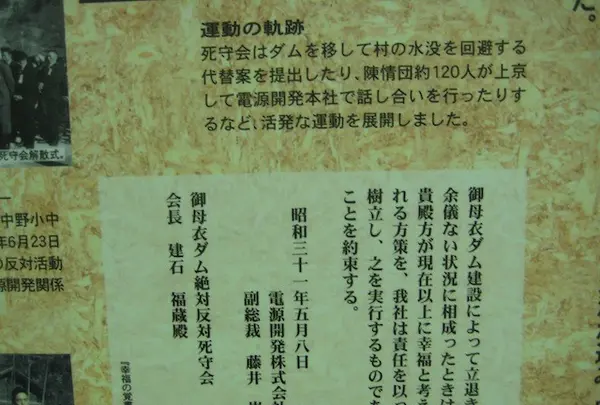 運動の軌跡
死守会はダムを移して村の水没を回避する
代替案を提出したり、陳情団約120人が上京
して電源開発本社で話し合いを行ったりす
るなど、活発な運動を展開しました。
た。
死守会解散式。
中野小中
年6月23日
の反対活動
源開発関係
御母衣ダム建設によって立退き
余儀ない状況に相成ったときは
貴殿方が現在以上に幸福と考え
れる方策を、我社は責任を以っ
樹立し、之を実行するものであ
ことを約束する。
昭和三十一年五月八日
電源開発株式会社
副総裁 藤井
御母衣ダム絶対反対死守会
会長 建石 福蔵殿
『幸福の覚書